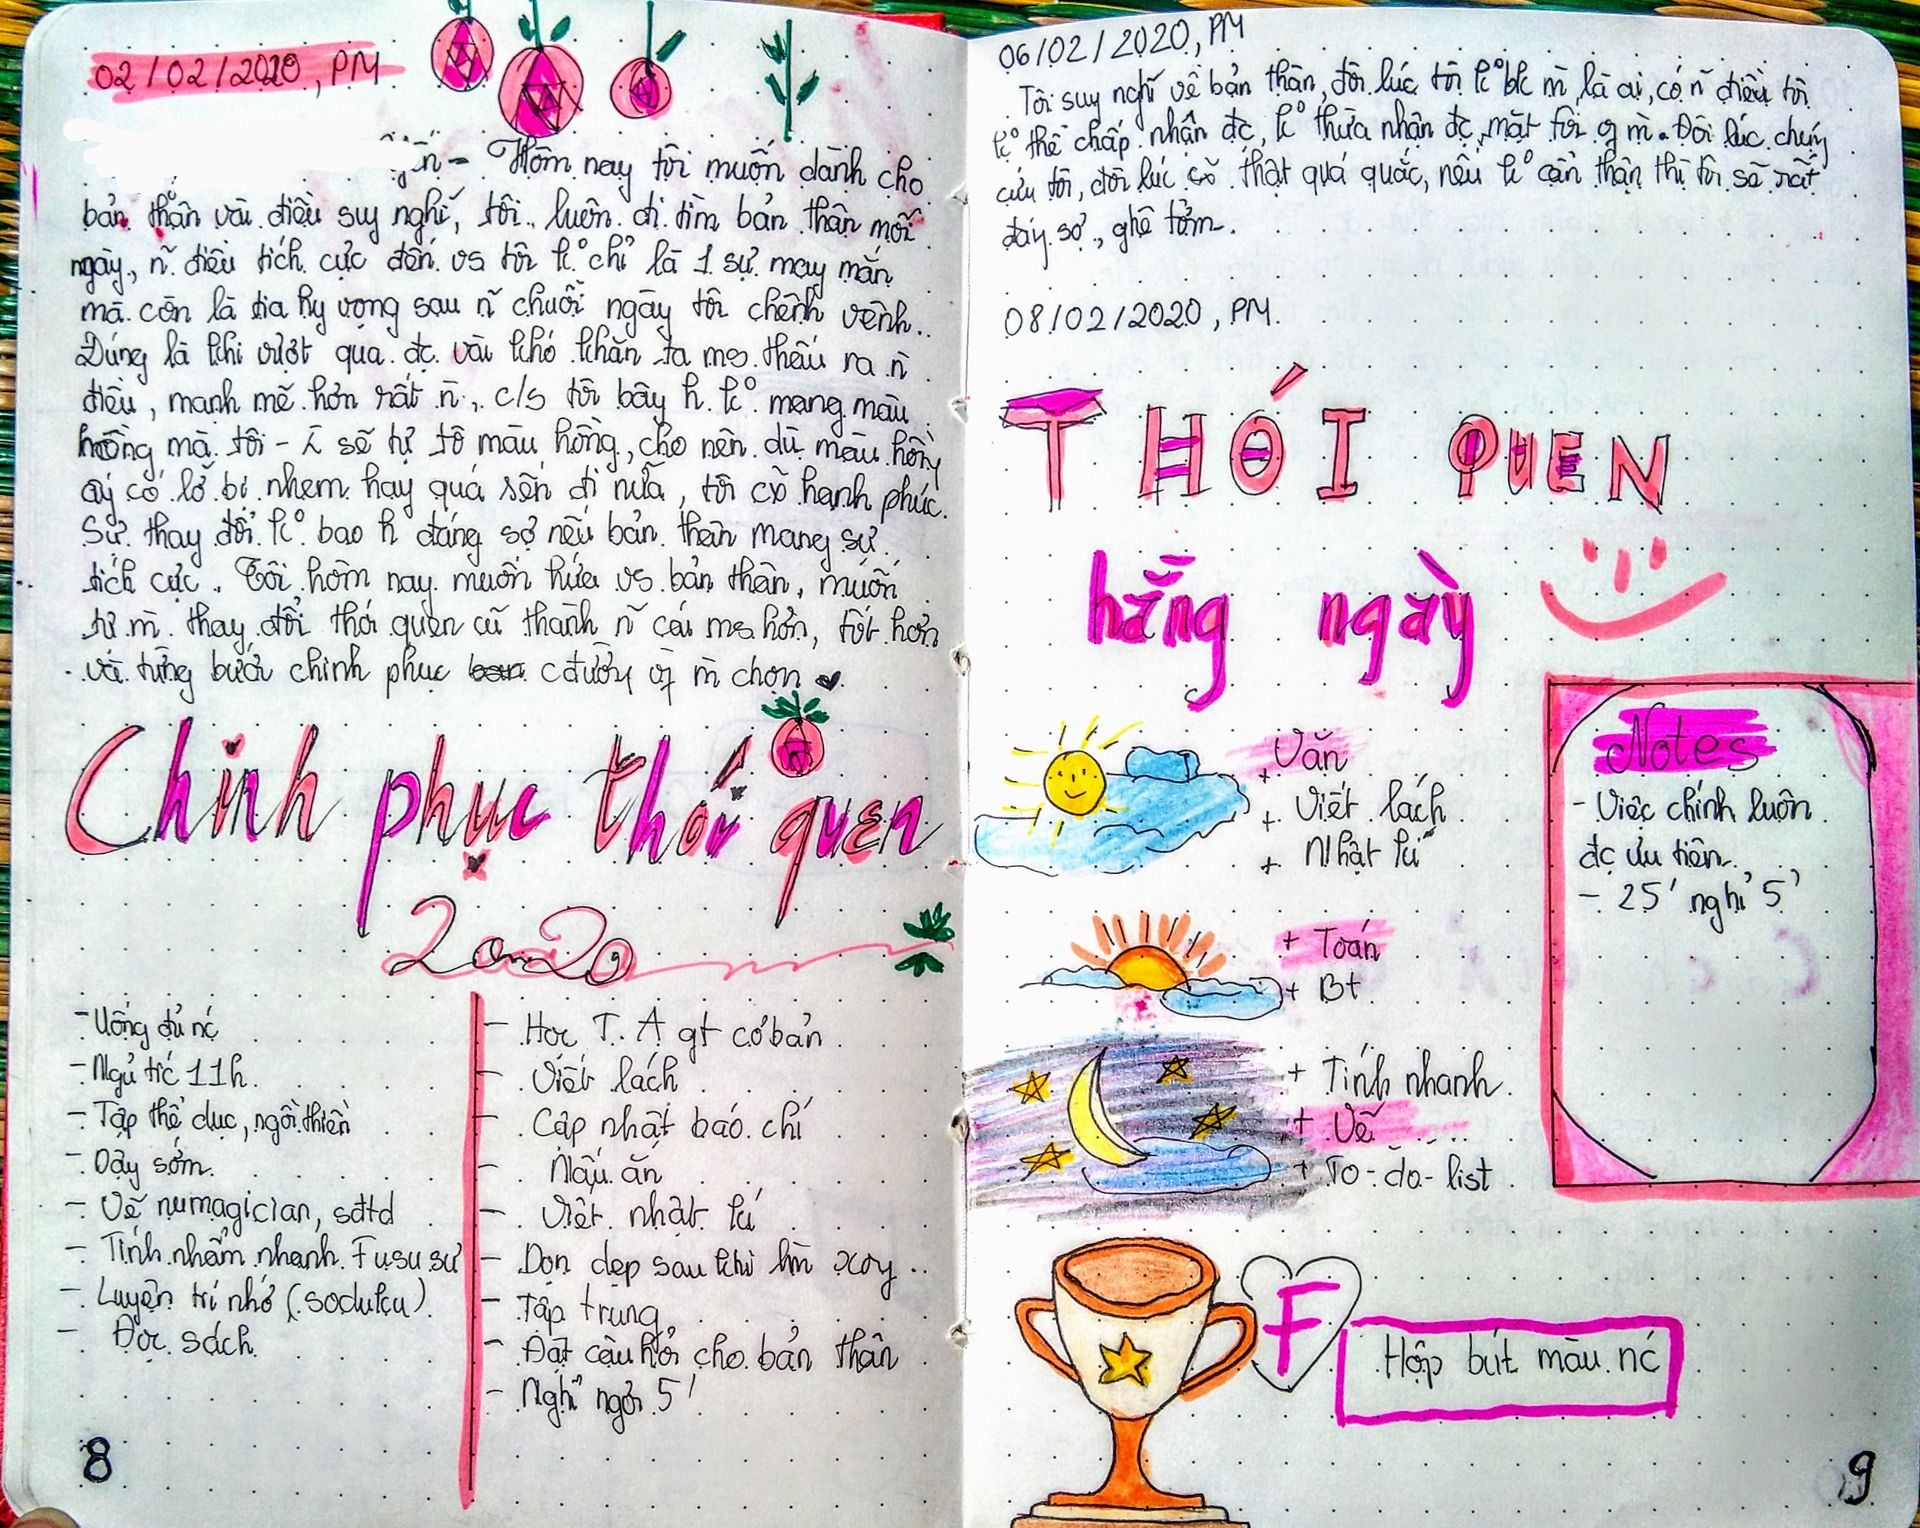 02/02/2020, PM
- Hôm nay tôi muốn dành cho
bản thân vài điều suy nghĩ, tôi luôn đi tìm bản thân mỗi
ngày, ñ điều tích cực đến vs tôi k° chỉ là 1 sự may mắn
mà còn là tia hy vọng sau ñ chuỗi ngày tôi chênh vênh..
Đúng là khi vượt qua đc vài khó khăn ta ms thấu ra ñ
điều, mạnh mẽ hơn rất ñ, c/s tôi bây h k° mang màu
hồng mà tôi - sẽ tự tô màu hồng, cho nên dù màu hồng
ấy có lỡ bị nhem hay quá sến đi nữa, tôi cx hạnh phúc.
Sự thay đổi k° bao h đáng sợ nếu bản thân mang sự
tích cực. Tôi hôm nay muốn hứa vs bản thân, muốn
tự m̀ thay đổi thói quen cũ thành ñ cái ms hơn, tốt hơn
và từng bước chinh phục c đường m̀ chọn
Chinh phục thói quen
2020
- Uống đủ nc
- Ngủ tr'c 11h
- Tập thể dục, ngồi thiền
- Dậy sớm.
- Vẽ numagician, sđtd
- Tính nhẩm nhanh Fusu sư
- Luyện trí nhớ (soduku)
- Đọc sách
- Học T.A gt cơ bản
- Viết lách
- Cập nhật báo chí
- Nấu ăn
- Viết nhật kí
- Dọn dẹp sau khi lm̀ xog..
- Tập trung
- Đặt câu hỏi cho bản thân
- Nghỉ ngơi 5'
8
06/02/2020, PM
Tôi suy nghĩ về bản thân, đôi lúc tôi k° bk m̀ là ai, có ñ điều tôi
k° thể chấp nhận đc, k° thừa nhận đc mặt tối m̀. Đôi lúc chúng
cứu tôi, đôi lúc cx thật quá quắc, nếu k° cẩn thận thì tôi sẽ rất
đáy sợ, ghê tởm.
08/02/2020, PM
THÓI QUEN
hằng ngày
Văn
+ Viết lách
+ Nhật kí
+ Toán
+ Bt
+ Tính nhanh
+ Vẽ
+ To-do-list
Notes
- Việc chính luôn
đc ưu tiên.
- 25' nghỉ 5'
F
Hộp bút màu nc
9